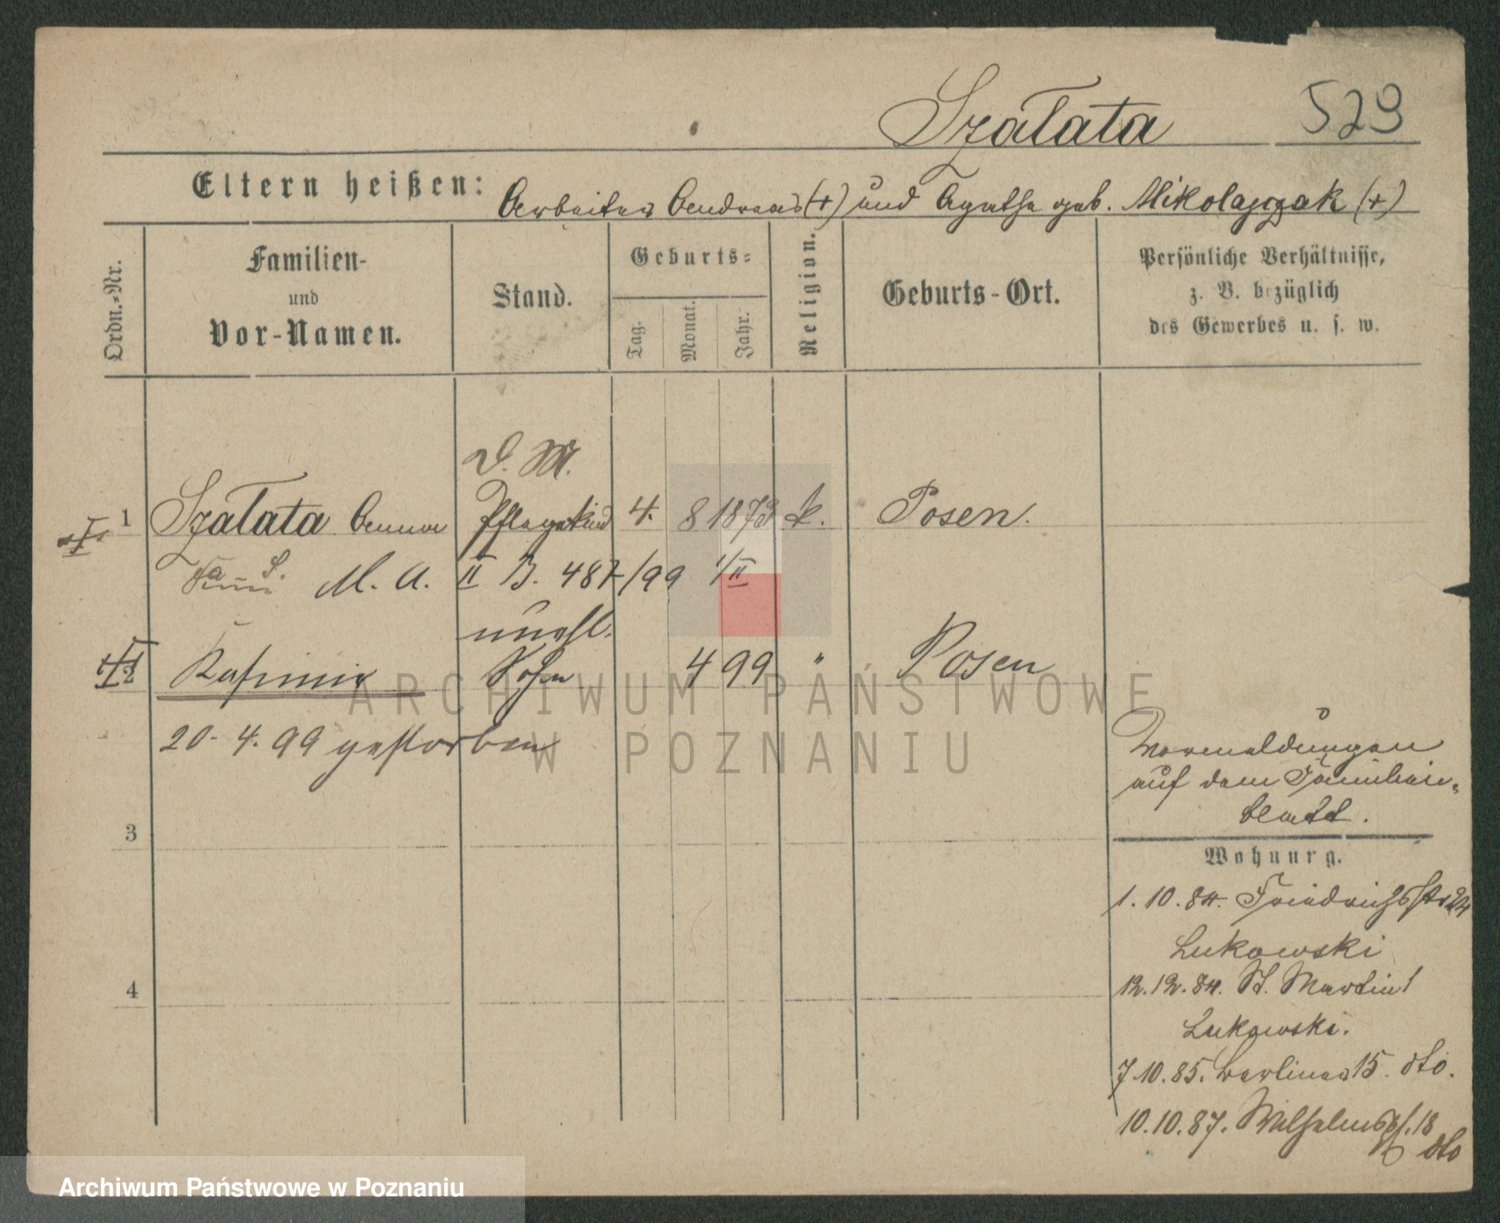 Szałata 529
Eltern heißen: Arbeiter Andreas (+) und Agathe geb. Mikolajczak (+)
Ordn.-Nr.
Familien- und Vor-Namen.
Stand.
Geburts-
Tag.
Monat.
Jahr.
Religion.
Geburts-Ort.
Persönliche Verhältnisse,
z. B. bezüglich
des Gewerbes u. s. w.
D. M.
1 Szałata Anna Pflegekind 4. 8 1873 k. Posen.
M. A. II B. 487/99 1/II
unehl.
Kasimir Sohn 4 99 " Posen
20. 4. 99 gestorben
Vormeldungen
auf dem Familien-
blatt.
3
Wohnung.
1. 10. 84. Friedrichsstr. 24
Lukowski
4
12. 12. 84. St. Martin 1
Lukowski.
7. 10. 85. Berliner 15. dto.
10. 10. 87. Wilhelmspl. 18
dto
ARCHIWUM PAŃSTWOWE
W POZNANIU
Archiwum Państwowe w Poznaniu